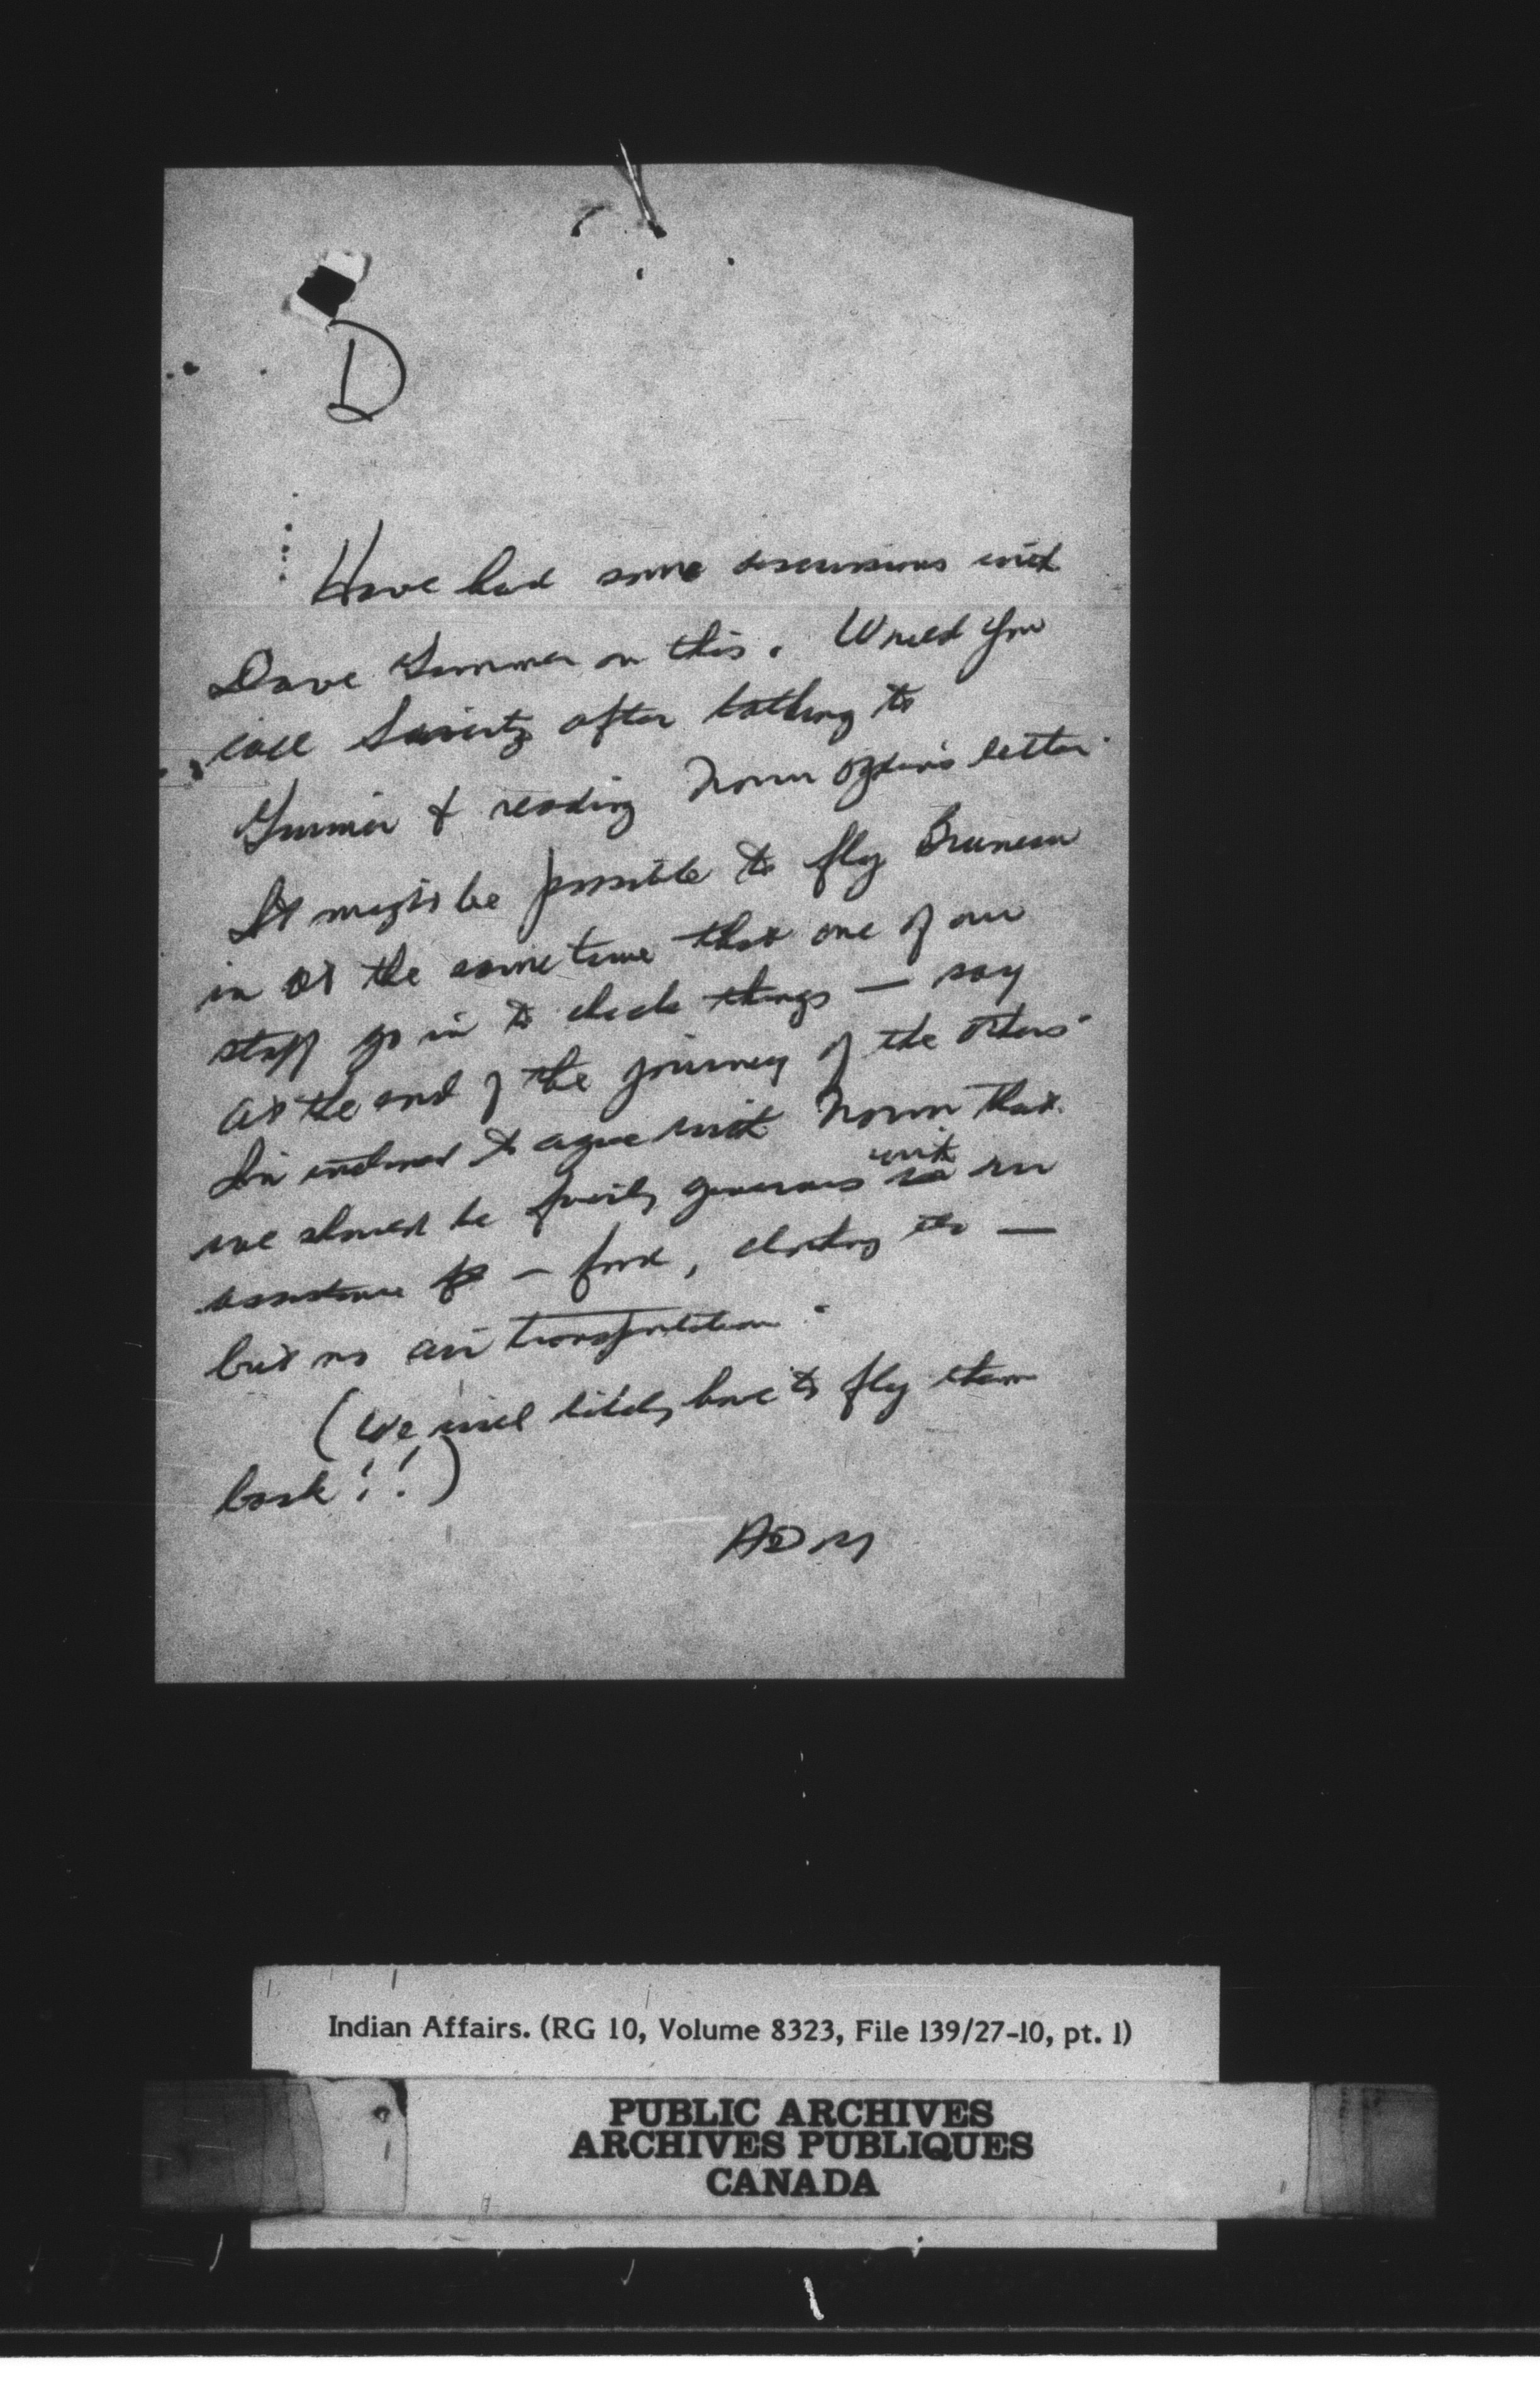 D
Have had some discussions with
Dave on this. Would you
call after talking to
& reading Norm Ogden's letter.
It might be possible to fly Bruneau
in at the same time that one of our
staff go in to check things — say
at the end of the journey of the others.
I'm inclined to agree with Norm that
with
we should be fairly generous our
assistance — food, clothing etc —
but no air transportation.
(We will likely have to fly them
back!!)
ADM
Indian Affairs. (RG 10, Volume 8323, File 139/27-10, pt. 1)
PUBLIC ARCHIVES
ARCHIVES PUBLIQUES
CANADA